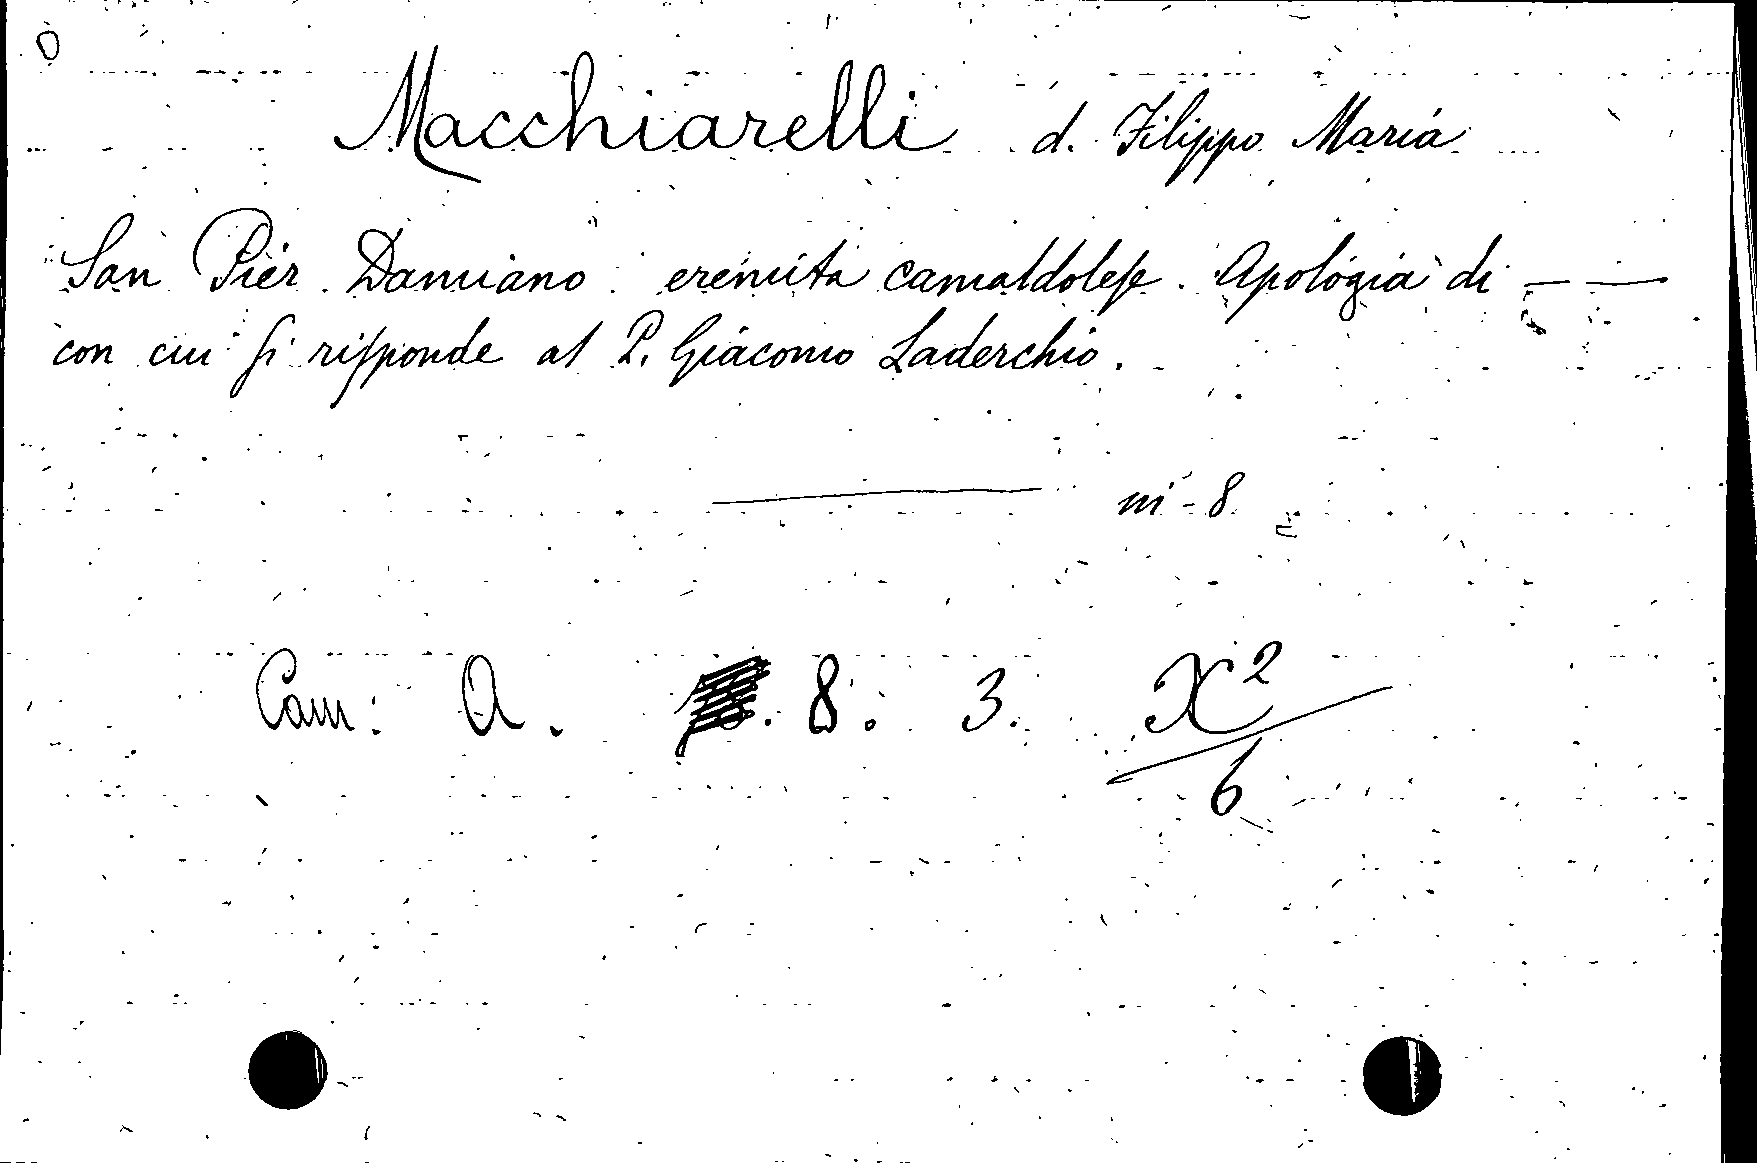 Macchiarelli d. Filippo Maria
San Pier Damiano eremita camaldolese. Apologia di — —
con cui si risponde al P. Giacomo Laderchio.
——— in-8
Cam: A. 8. 3. X²/6